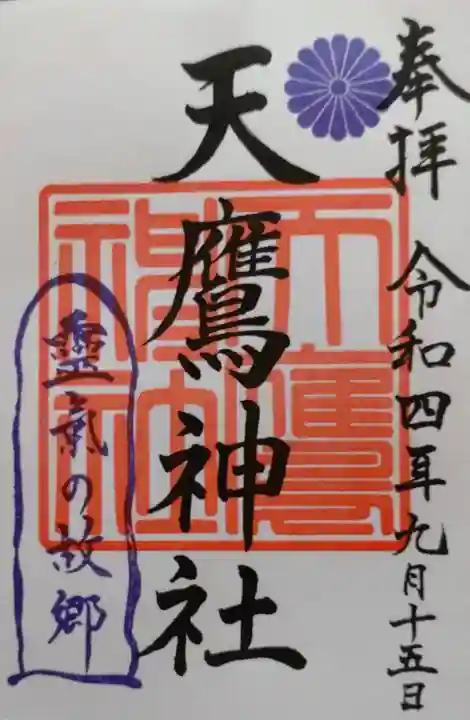 奉拝 令和四年九月十五日
天鷹神社
天鷹神社
靈氣の故郷